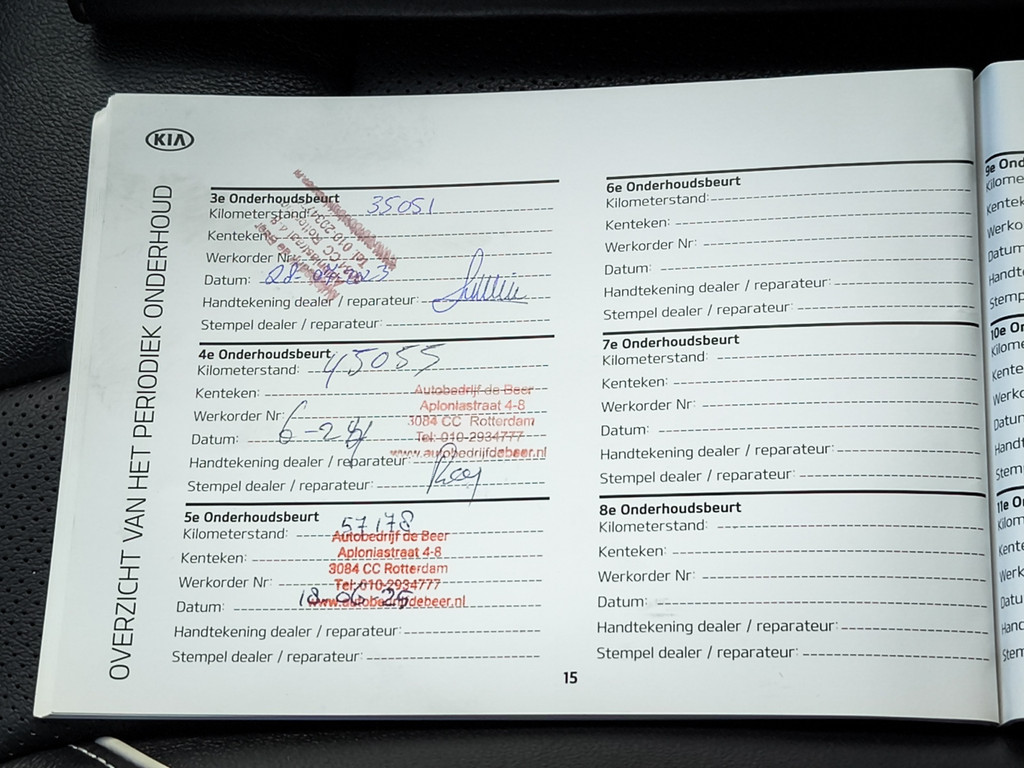 KIA
OVERZICHT VAN HET PERIODIEK ONDERHOUD
3e Onderhoudsbeurt
Kilometerstand: 35051
Kenteken:
Werkorder Nr:
Datum: 28- 2023
Handtekening dealer / reparateur:
Stempel dealer / reparateur:
4e Onderhoudsbeurt
Kilometerstand: 45055
Kenteken:
Werkorder Nr:
Datum: 6-
Handtekening dealer / reparateur:
Stempel dealer / reparateur:
Autobedrijf de Beer
Aploniastraat 4-8
3084 CC Rotterdam
Tel: 010-2934777
www.autobedrijfdebeer.nl
5e Onderhoudsbeurt
Kilometerstand: 57178
Kenteken:
Werkorder Nr:
Datum: 18-06 25
Handtekening dealer / reparateur:
Stempel dealer / reparateur:
Autobedrijf de Beer
Aploniastraat 4-8
3084 CC Rotterdam
Tel: 010-2934777
www.autobedrijfdebeer.nl
6e Onderhoudsbeurt
Kilometerstand:
Kenteken:
Werkorder Nr:
Datum:
Handtekening dealer / reparateur:
Stempel dealer / reparateur:
7e Onderhoudsbeurt
Kilometerstand:
Kenteken:
Werkorder Nr:
Datum:
Handtekening dealer / reparateur:
Stempel dealer / reparateur:
8e Onderhoudsbeurt
Kilometerstand:
Kenteken:
Werkorder Nr:
Datum:
Handtekening dealer / reparateur:
Stempel dealer / reparateur:
15